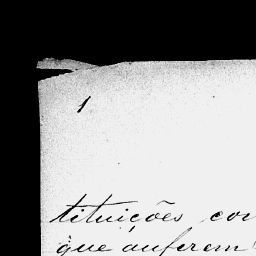 1
tituições con
que auferem